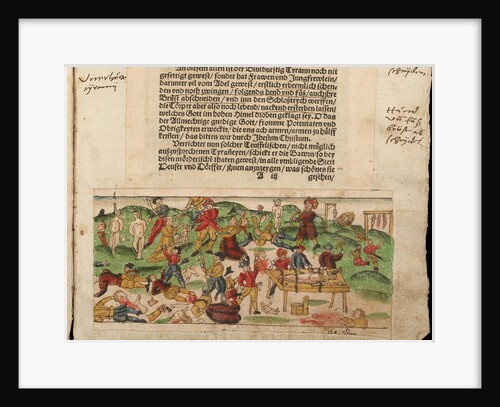 An disem allen ist der Bludturstig Tyrann noch nit
gesettigt gewest / sonder hat Frawen und Jungfrewlein /
darunter vil vom Adel gewest / erstlich erbermlich schen-
den und nothzwingen / folgendα hend und füß / auch ihre
Brüst abschneiden / und inn den Schloßteych werffen /
die Cörper aber also noch lebend / nackend ersterben lassen /
welches Gott im hohen Himel droben geklagt sey. O das
der Allmechtige gnedige Gott / fromme Potentaten und
Obrigkeyten erweckte / die uns ach armen / armen zu hülff
kersten / das bitten wir durch Jhesum Christum.
Verrichter nun solcher Teuffelischen / nicht möglich
auszusprechenen Tyrañeyen / schickt er die Bawrn / so bey
disen mörderischē thaten gewest / in alle umbligende Stett
Heuser und Dörffer / ihnen anzuzeygen / was schönes sie
A iij gesehen /